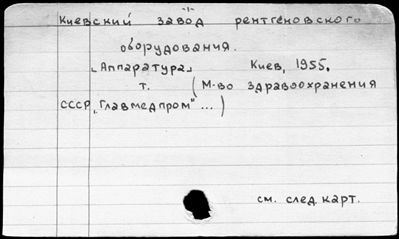 -1-
Киевский завод рентгеновского
оборудования.
„Аппаратура„ Киев, 1955.
т. (М-во здравоохранения
СССР, „Главмедпром" ...)
см. след. карт.